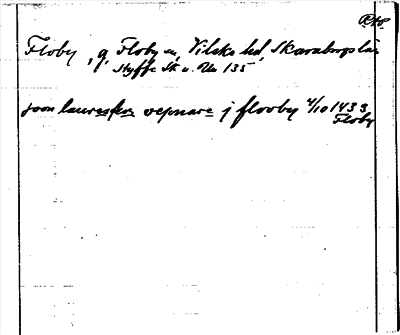 RAP.
Floby, g, Floby sn, Vilske hd, Skaraborgs län
Styffe Sk u. Un 135
joon lauresson vepnare j flovby 4/10 1433
Floby